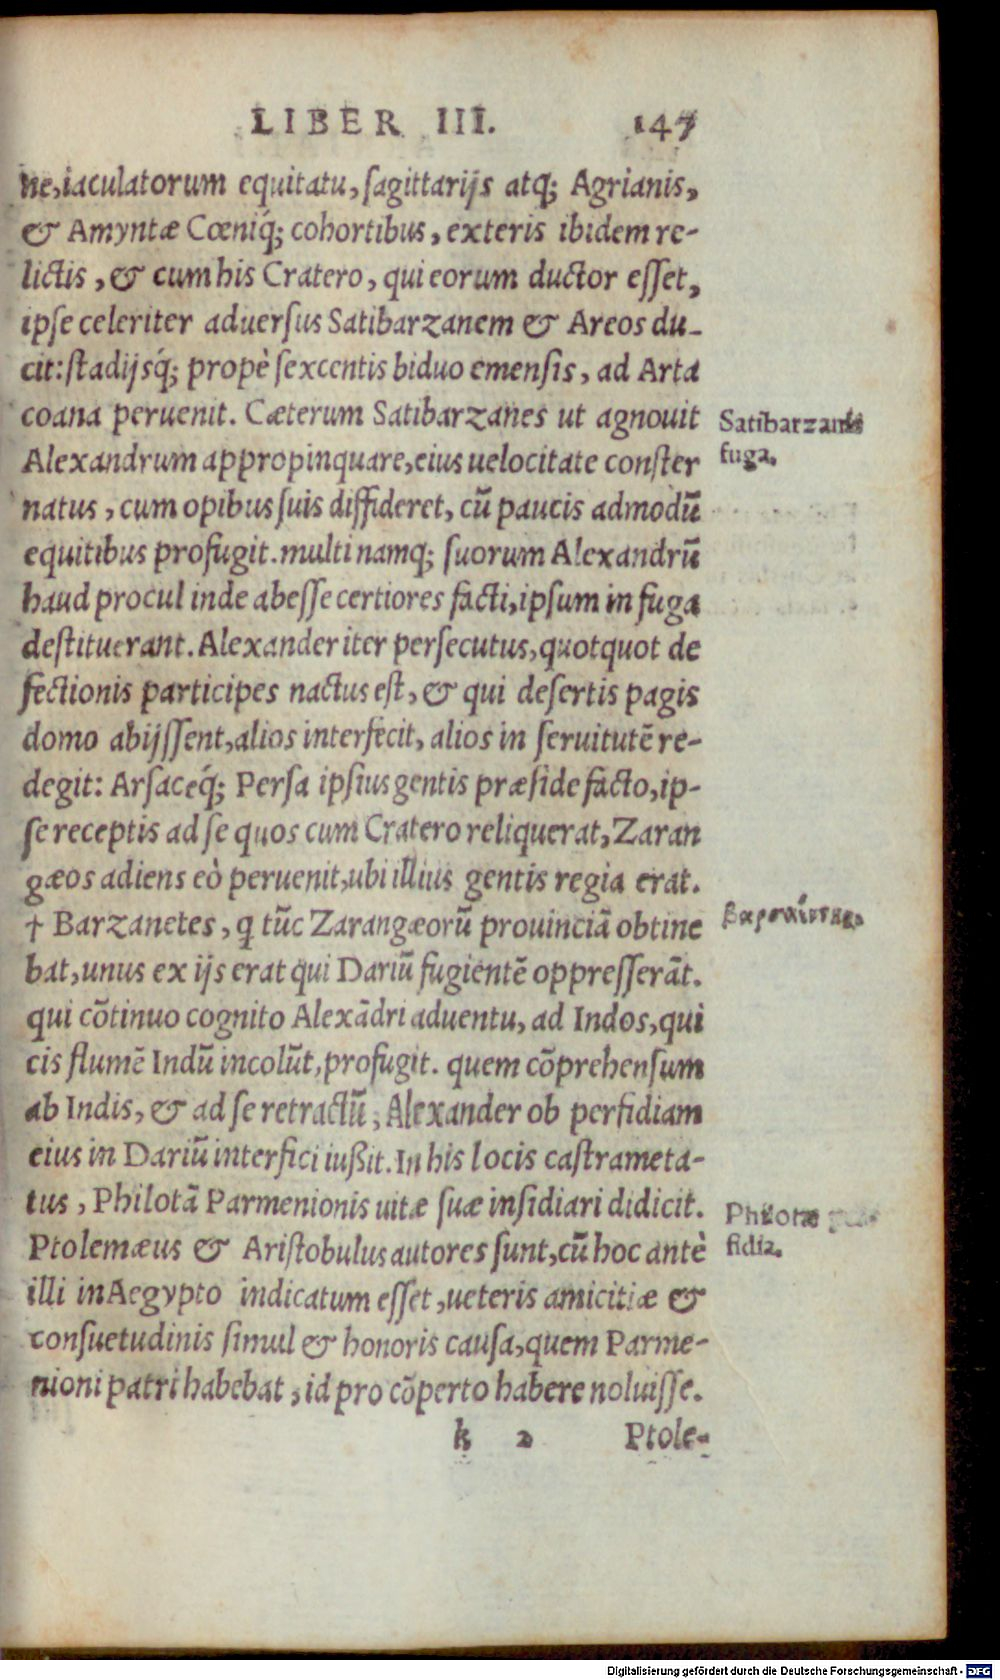 LIBER III. 147
ne, iaculatorum equitatu, sagittarijs atq; Agrianis,
& Amyntæ Cœniq́; cohortibus, exteris ibidem re-
lictis, & cum his Cratero, qui eorum ductor esset,
ipse celeriter aduersus Satibarzanem & Areos du-
cit: stadijsq́; propè sexcentis biduo emensis, ad Arta
coana peruenit. Cæterum Satibarzanes ut agnouit
Satibarzanis
Alexandrum appropinquare, eius uelocitate conster
fuga.
natus, cum opibus suis diffideret, cū paucis admodū
equitibus profugit. multi namq; suorum Alexandrū
haud procul inde abesse certiores facti, ipsum in fuga
destituerant. Alexander iter persecutus, quotquot de
fectionis participes nactus est, & qui desertis pagis
domo abijssent, alios interfecit, alios in seruitutē re-
degit: Arsaceq́; Persa ipsius gentis præside facto, ip-
se receptis ad se quos cum Cratero reliquerat, Zaran
gæos adiens eò peruenit, ubi illius gentis regia erat.
† Barzanetes, q tūc Zarangæorū prouinciā obtine
bat, unus ex ijs erat qui Dariū fugientē oppresserāt.
qui cōtinuo cognito Alexādri aduentu, ad Indos, qui
cis flumē Indū incolūt, profugit. quem cōprehensum
ab Indis, & ad se retractū, Alexander ob perfidiam
eius in Dariū interfici iußit. In his locis castrameta-
tus, Philotā Parmenionis uitæ suæ insidiari didicit.
Philotæ
Ptolemæus & Aristobulus autores sunt, cū hoc antè
fidia.
illi in Aegypto indicatum esset, ueteris amicitiæ &
consuetudinis simul & honoris causa, quem Parme-
nioni patri habebat, id pro cōperto habere noluisse.
k 2 Ptole-
Digitalisierung gefördert durch die Deutsche Forschungsgemeinschaft - DFG